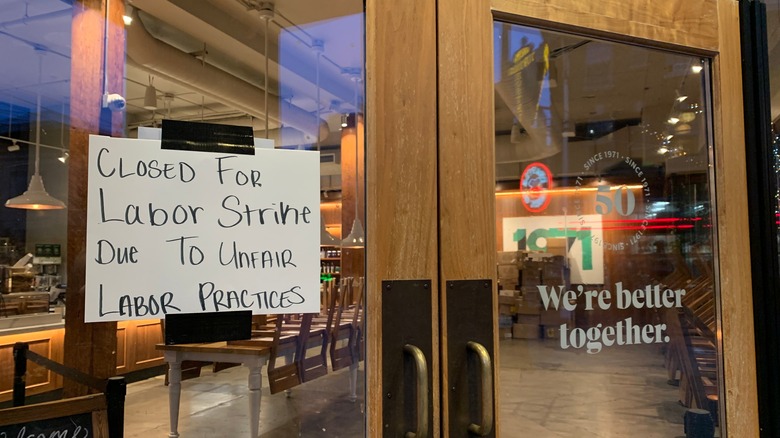 CLOSED FOR
Labor Strike
DUE TO UNFAIR
LABOR PRACTICES
SINCE 1971 · SINCE 1971 · SINCE 1971
50
1971
We're better
together.
Welcome